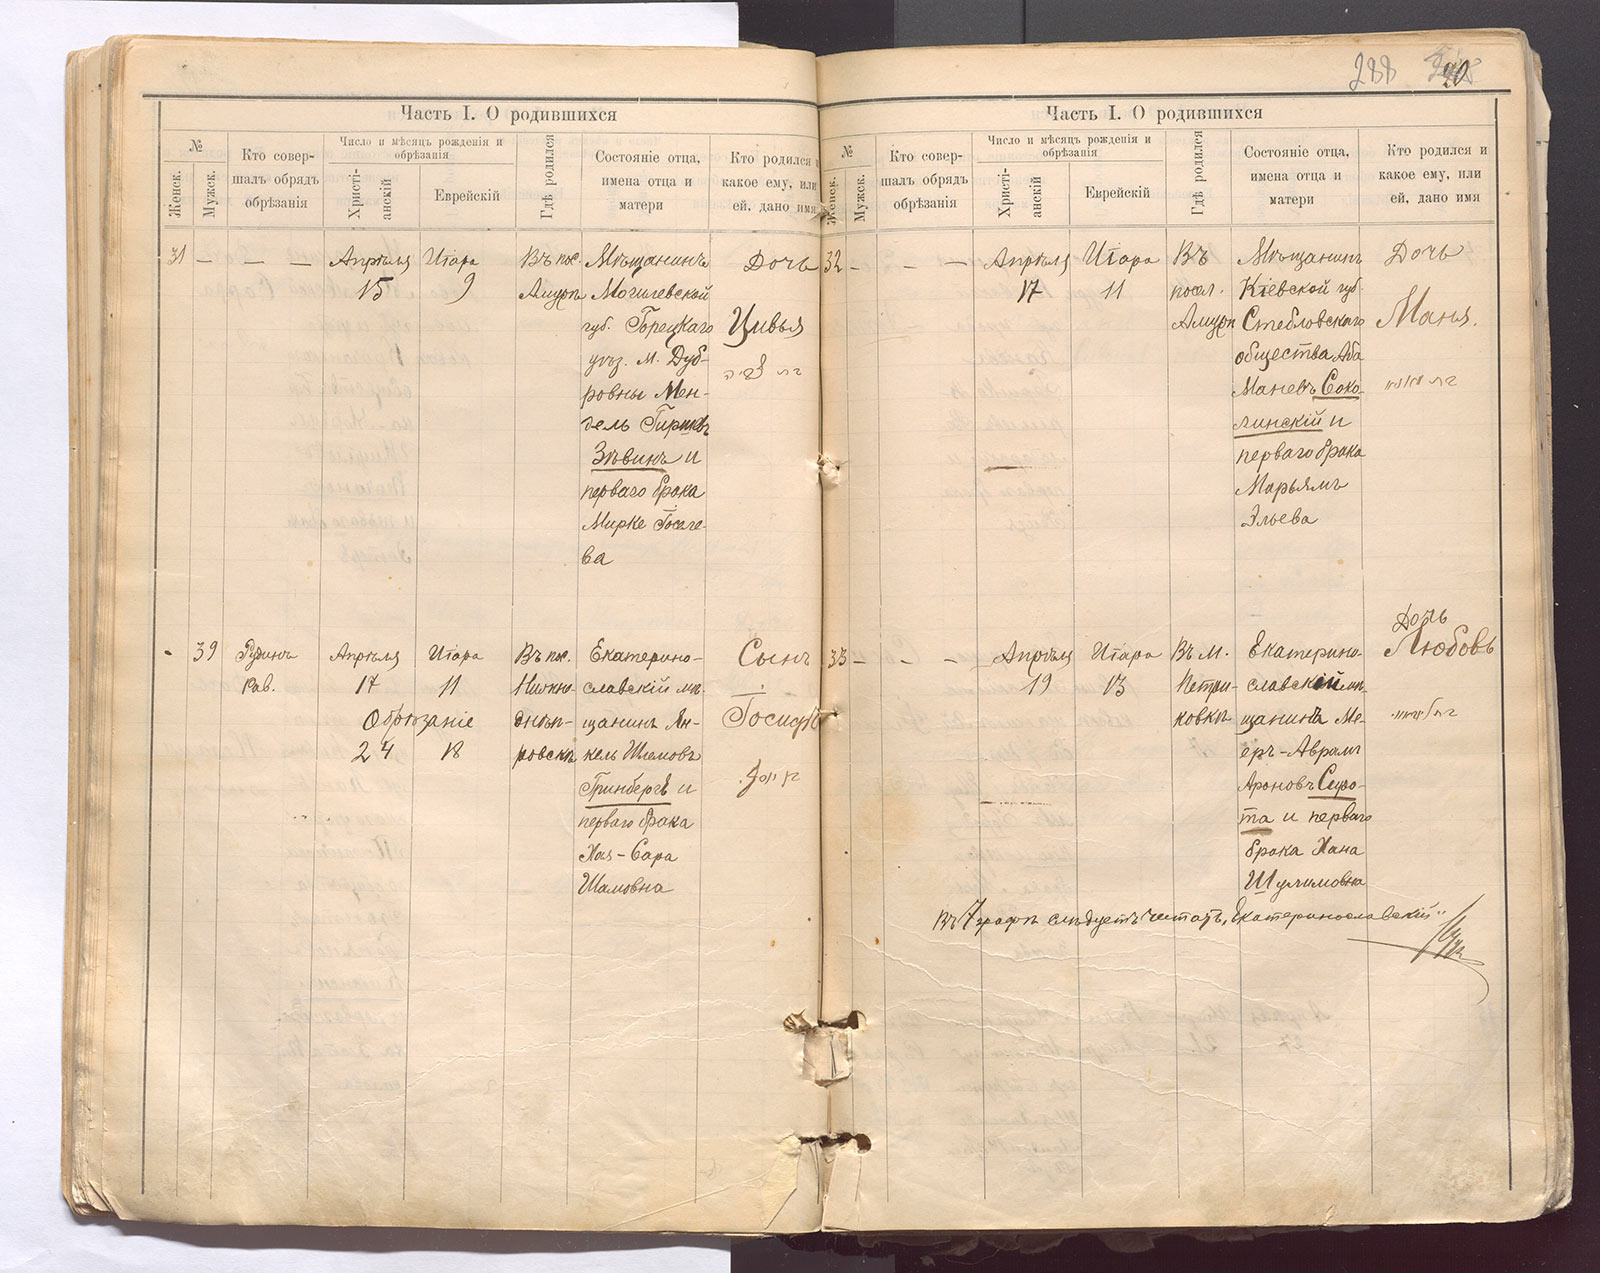 288 20
Часть I. О родившихся
№
Женск.
Мужск.
Кто совер-
шалъ обрядъ
обрѣзанія
Число и мѣсяцъ рожденія и
обрѣзанія
Христі-
анскій
Еврейскій
Гдѣ родился
Состояніе отца,
имена отца и
матери
Кто родился и
какое ему, или
ей, дано имя
31 — — —
Апрѣля
15
Итара
9
Въ пос.
Амурѣ
Мѣщанинъ
Могилевской
губ. Горецкаго
уѣз. м. Дуб-
ровны Мен-
дель Гиршовъ
Зѣвинъ и
перваго брака
Мирке
ва
Дочь
Цивья
39
Рудинъ
Рав.
Апрѣля
17
Обрѣзаніе
24
Итара
11
18
Въ пос.
Нижне-
днѣп-
ровскѣ
Екатерино-
славскій мѣ-
щанинъ Ян-
кель Шлемовъ
Гринбергъ и
перваго брака
Хая-Сара
Шамовна
Сынъ
Госифъ
Часть I. О родившихся
№
Женск.
Мужск.
Кто совер-
шалъ обрядъ
обрѣзанія
Число и мѣсяцъ рожденія и
обрѣзанія
Христі-
анскій
Еврейскій
Гдѣ родился
Состояніе отца,
имена отца и
матери
Кто родился и
какое ему, или
ей, дано имя
32 — — —
Апрѣля
17
Итара
11
Въ
посел.
Амурѣ
Мѣщанинъ
Кіевской губ.
Стебловскаго
общества Аба
Маневъ Соко-
линскій и
перваго брака
Марьямъ
Эльева
Дочь
Маня.
33 — — —
Апрѣля
19
Итара
13
Въ м.
Петри-
ковкѣ
Екатерино-
славскій мѣ-
щанинъ Ме-
еръ-Аврамъ
Ароновъ Сиро-
та и перваго
брака Хана
Шулимовна
Дочь
Любовь
Въ 7 графѣ слѣдуетъ читать „Екатеринославскій"